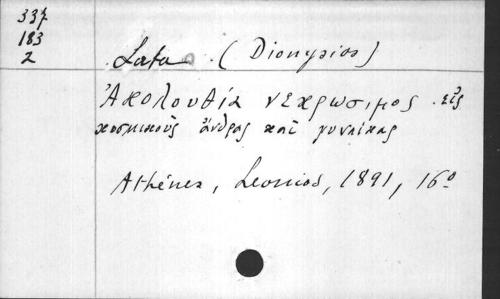 337
183
2
Lata (Dionysios)
Ἀκολουθία νεκρωσιμος εἰς
κοσμικοὺς ἄνδρας καὶ γυναίκας
Athénes, Leonios, 1891, 16º